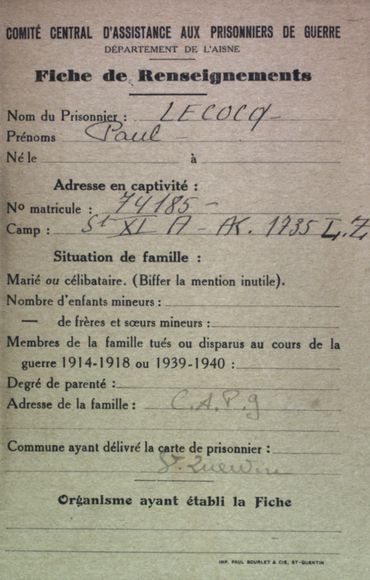 COMITÉ CENTRAL D'ASSISTANCE AUX PRISONNIERS DE GUERRE
DÉPARTEMENT DE L'AISNE
Fiche de Renseignements
Nom du Prisonnier : LECOCQ -
Prénoms Paul -
Né le à
Adresse en captivité :
No matricule : 74185 -
Camp : St XI A - AK. 1735 L.Z
Situation de famille :
Marié ou célibataire. (Biffer la mention inutile).
Nombre d'enfants mineurs :
— de frères et sœurs mineurs :
Membres de la famille tués ou disparus au cours de la
guerre 1914-1918 ou 1939-1940 :
Degré de parenté :
Adresse de la famille : C.A.P.g
Commune ayant délivré la carte de prisonnier :
St
Organisme ayant établi la Fiche
IMP. PAUL BOURLET & CIE, ST-QUENTIN